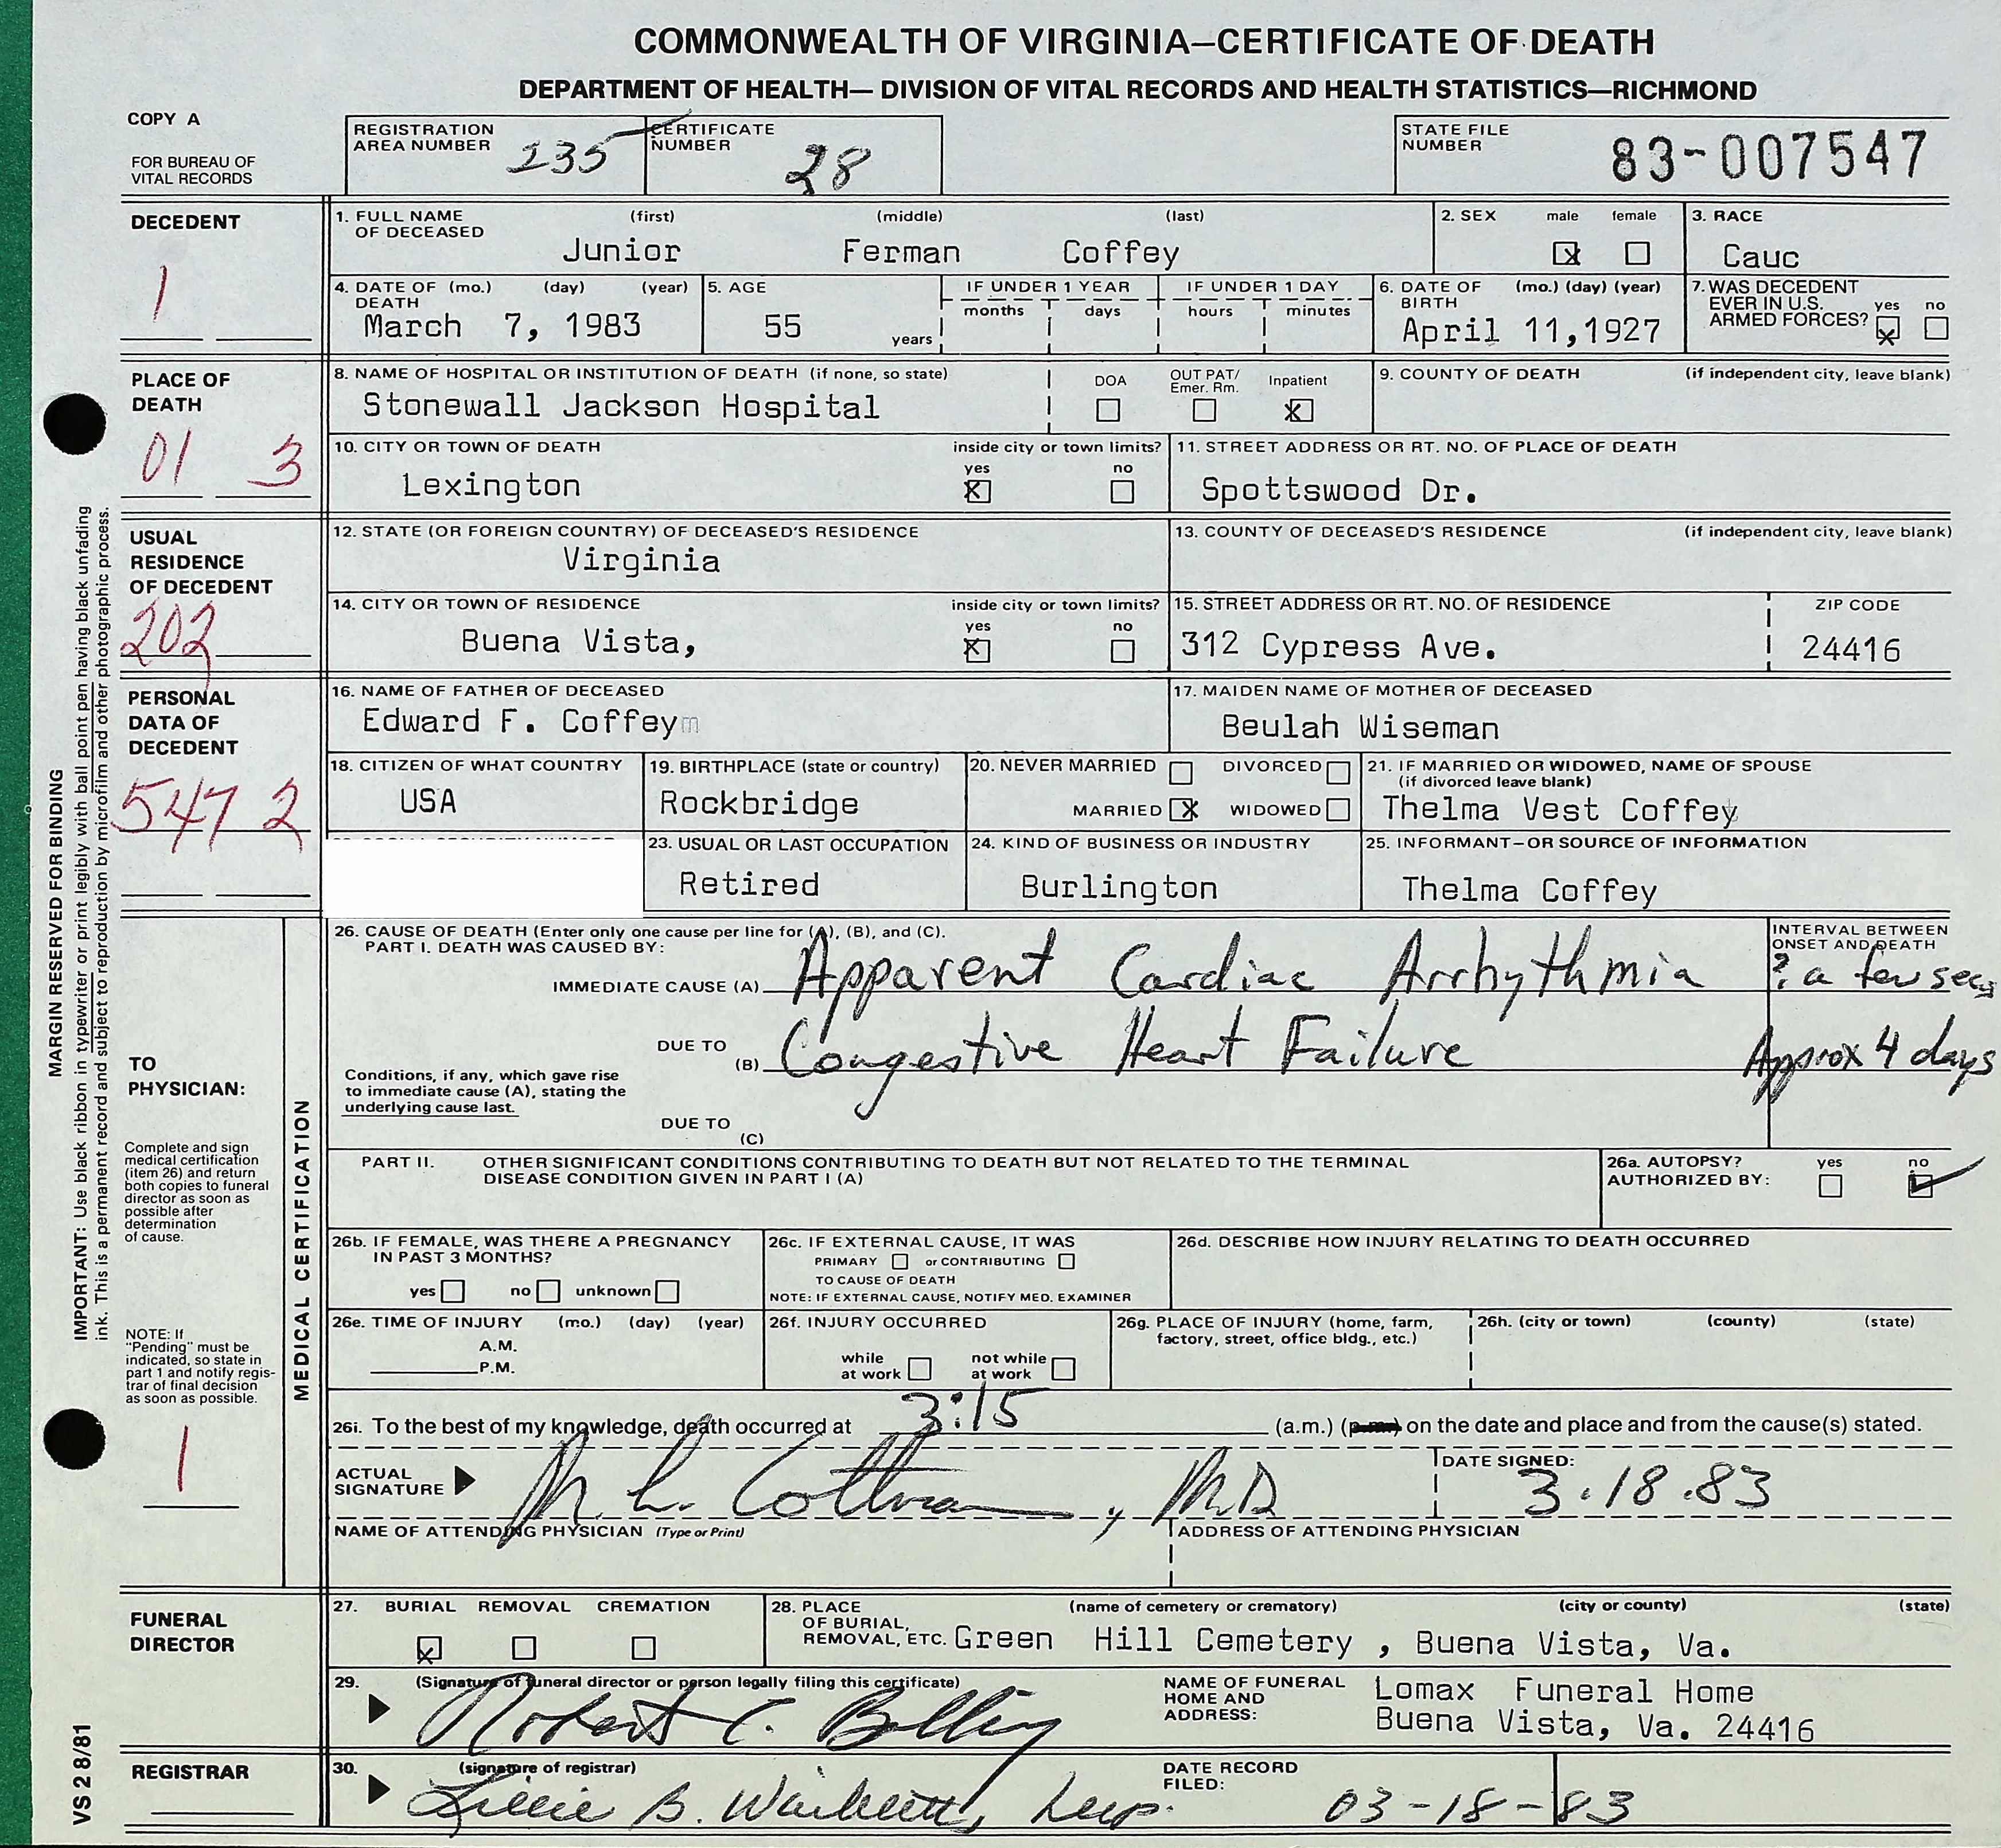 COMMONWEALTH OF VIRGINIA—CERTIFICATE OF DEATH
DEPARTMENT OF HEALTH— DIVISION OF VITAL RECORDS AND HEALTH STATISTICS—RICHMOND
COPY A
FOR BUREAU OF
VITAL RECORDS
REGISTRATION
AREA NUMBER 135
CERTIFICATE
NUMBER 28
STATE FILE
NUMBER 83-007547
DECEDENT
1
1. FULL NAME (first) (middle) (last)
OF DECEASED
Junior Ferman Coffey
2. SEX male female
x
3. RACE
Cauc
4. DATE OF (mo.) (day) (year)
DEATH
March 7, 1983
5. AGE
55
years
IF UNDER 1 YEAR
months days
IF UNDER 1 DAY
hours minutes
6. DATE OF (mo.) (day) (year)
BIRTH
April 11,1927
7. WAS DECEDENT
EVER IN U.S. yes no
ARMED FORCES? x
PLACE OF
DEATH
01 3
8. NAME OF HOSPITAL OR INSTITUTION OF DEATH (if none, so state)
Stonewall Jackson Hospital
DOA OUT PAT/ Inpatient
Emer. Rm.
x
9. COUNTY OF DEATH (if independent city, leave blank)
10. CITY OR TOWN OF DEATH inside city or town limits?
yes no
Lexington x
11. STREET ADDRESS OR RT. NO. OF PLACE OF DEATH
Spottswood Dr.
USUAL
RESIDENCE
OF DECEDENT
202
12. STATE (OR FOREIGN COUNTRY) OF DECEASED'S RESIDENCE
Virginia
13. COUNTY OF DECEASED'S RESIDENCE (if independent city, leave blank)
14. CITY OR TOWN OF RESIDENCE inside city or town limits?
yes no
Buena Vista, x
15. STREET ADDRESS OR RT. NO. OF RESIDENCE ZIP CODE
312 Cypress Ave. 24416
PERSONAL
DATA OF
DECEDENT
547 2
16. NAME OF FATHER OF DECEASED
Edward F. Coffey
17. MAIDEN NAME OF MOTHER OF DECEASED
Beulah Wiseman
18. CITIZEN OF WHAT COUNTRY
USA
19. BIRTHPLACE (state or country)
Rockbridge
20. NEVER MARRIED DIVORCED
MARRIED X WIDOWED
21. IF MARRIED OR WIDOWED, NAME OF SPOUSE
(if divorced leave blank)
Thelma Vest Coffey
23. USUAL OR LAST OCCUPATION
Retired
24. KIND OF BUSINESS OR INDUSTRY
Burlington
25. INFORMANT—OR SOURCE OF INFORMATION
Thelma Coffey
MARGIN RESERVED FOR BINDING
IMPORTANT: Use black ribbon in typewriter or print legibly with ball point pen having black unfading
ink. This is a permanent record and subject to reproduction by microfilm and other photographic process.
TO
PHYSICIAN:
Complete and sign
medical certification
(item 26) and return
both copies to funeral
director as soon as
possible after
determination
of cause.
NOTE: If
"Pending" must be
indicated, so state in
part 1 and notify regis-
trar of final decision
as soon as possible.
1
MEDICAL CERTIFICATION
26. CAUSE OF DEATH (Enter only one cause per line for (A), (B), and (C).
PART I. DEATH WAS CAUSED BY:
INTERVAL BETWEEN
ONSET AND DEATH
IMMEDIATE CAUSE (A) Apparent Cardiac Arrhythmia ? a few secs
DUE TO
(B) Congestive Heart Failure Approx 4 days
Conditions, if any, which gave rise
to immediate cause (A), stating the
underlying cause last.
DUE TO
(C)
PART II. OTHER SIGNIFICANT CONDITIONS CONTRIBUTING TO DEATH BUT NOT RELATED TO THE TERMINAL
DISEASE CONDITION GIVEN IN PART I (A)
26a. AUTOPSY? yes no
AUTHORIZED BY: ✓
26b. IF FEMALE, WAS THERE A PREGNANCY
IN PAST 3 MONTHS?
yes no unknown
26c. IF EXTERNAL CAUSE, IT WAS
PRIMARY or CONTRIBUTING
TO CAUSE OF DEATH
NOTE: IF EXTERNAL CAUSE, NOTIFY MED. EXAMINER
26d. DESCRIBE HOW INJURY RELATING TO DEATH OCCURRED
26e. TIME OF INJURY (mo.) (day) (year)
A.M.
P.M.
26f. INJURY OCCURRED
while not while
at work at work
26g. PLACE OF INJURY (home, farm,
factory, street, office bldg., etc.)
26h. (city or town) (county) (state)
26i. To the best of my knowledge, death occurred at 3:15 (a.m.) (p.m.) on the date and place and from the cause(s) stated.
ACTUAL
SIGNATURE M. L. Cothran, M.D
DATE SIGNED:
3.18.83
NAME OF ATTENDING PHYSICIAN (Type or Print)
ADDRESS OF ATTENDING PHYSICIAN
FUNERAL
DIRECTOR
27. BURIAL REMOVAL CREMATION
x
28. PLACE (name of cemetery or crematory) (city or county) (state)
OF BURIAL,
REMOVAL, ETC. Green Hill Cemetery , Buena Vista, Va.
29. (Signature of funeral director or person legally filing this certificate)
Robert C. Bolling
NAME OF FUNERAL
HOME AND
ADDRESS:
Lomax Funeral Home
Buena Vista, Va. 24416
REGISTRAR
30. (signature of registrar)
Lillie B.
DATE RECORD
FILED:
03-18-83
VS 2 8/81